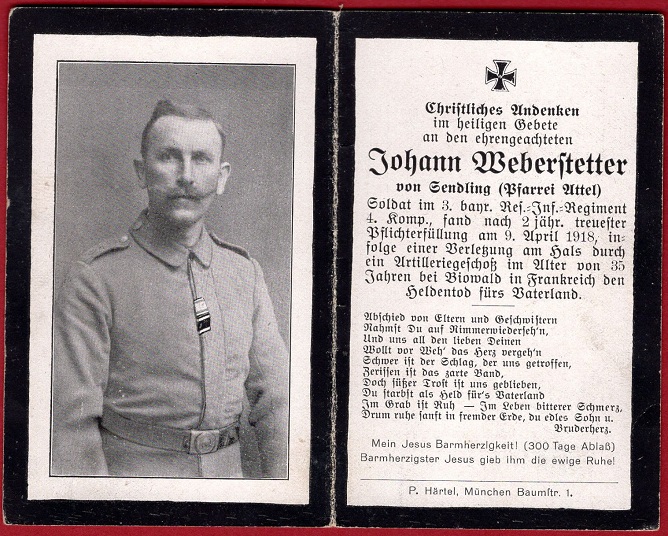 Christliches Andenken
im heiligen Gebete
an den ehrengeachteten
Johann Weberstetter
von Sendling (Pfarrei Attel)
Soldat im 3. bayr. Res.-Inf.-Regiment
4. Komp., fand nach 2 jähr. treuester
Pflichterfüllung am 9. April 1918, in-
folge einer Verletzung am Hals durch
ein Artilleriegeschoß im Alter von 35
Jahren bei Biowald in Frankreich den
Heldentod fürs Vaterland.
Abschied von Eltern und Geschwistern
Nahmst Du auf Nimmerwiederseh'n,
Und uns all den lieben Deinen
Wollt vor Weh' das Herz vergeh'n
Schwer ist der Schlag, der uns getroffen,
Zerissen ist das zarte Band,
Doch süßer Trost ist uns geblieben,
Du starbst als Held für's Vaterland
Im Grab ist Ruh — Im Leben bitterer Schmerz,
Drum ruhe sanft in fremder Erde, du edles Sohn u.
Bruderherz.
Mein Jesus Barmherzigkeit! (300 Tage Ablaß)
Barmherzigster Jesus gieb ihm die ewige Ruhe!
P. Härtel, München Baumstr. 1.